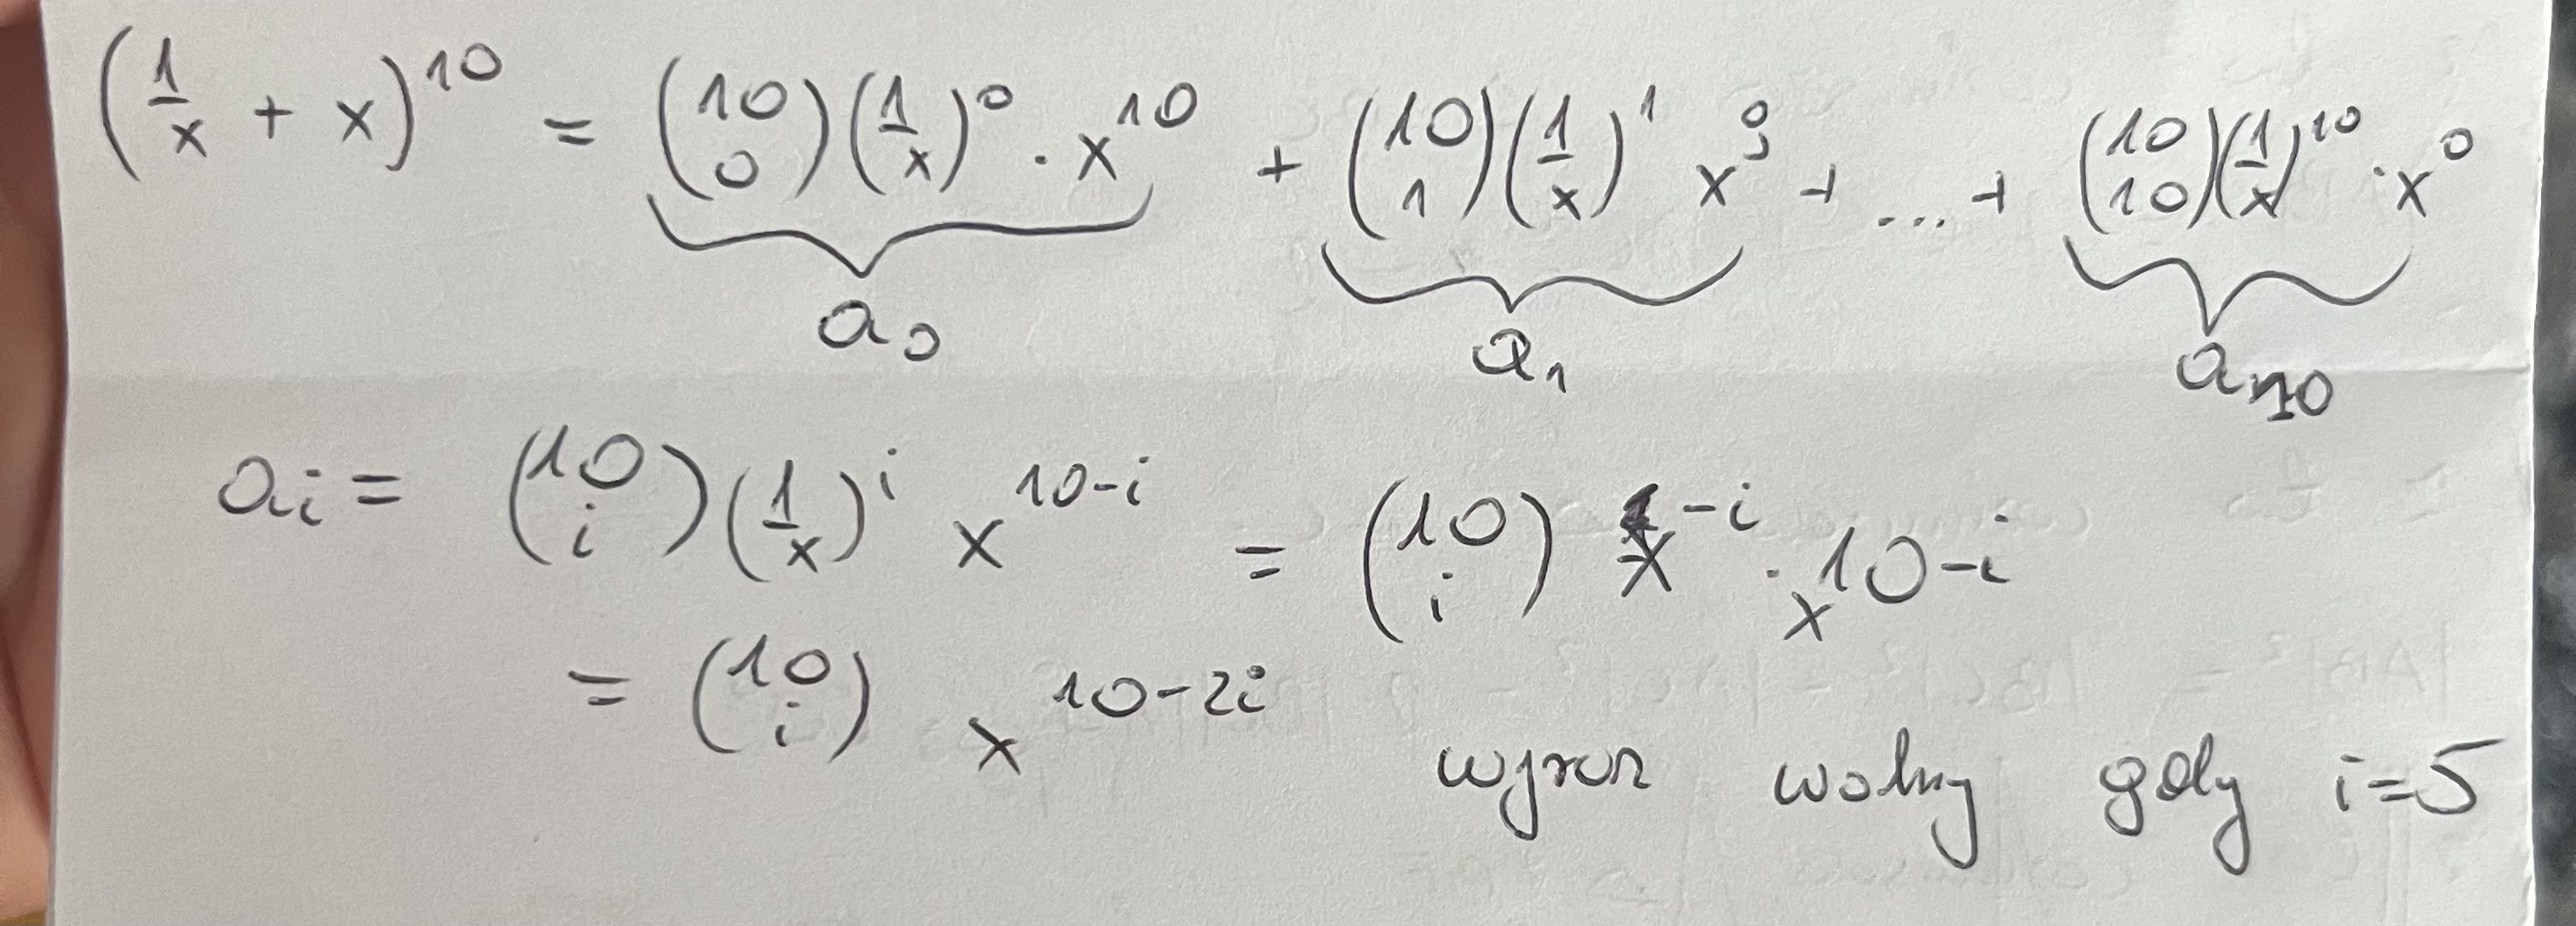 (1/x + x)^10 = (10 0)(1/x)^0 · x^10 + (10 1)(1/x)^1 x^9 + ... + (10 10)(1/x)^10 · x^0
a_0 a_1 a_10
a_i = (10 i)(1/x)^i x^10-i = (10 i) x^-i · x^10-i
= (10 i) x^10-2i
wyraz wolny gdy i=5